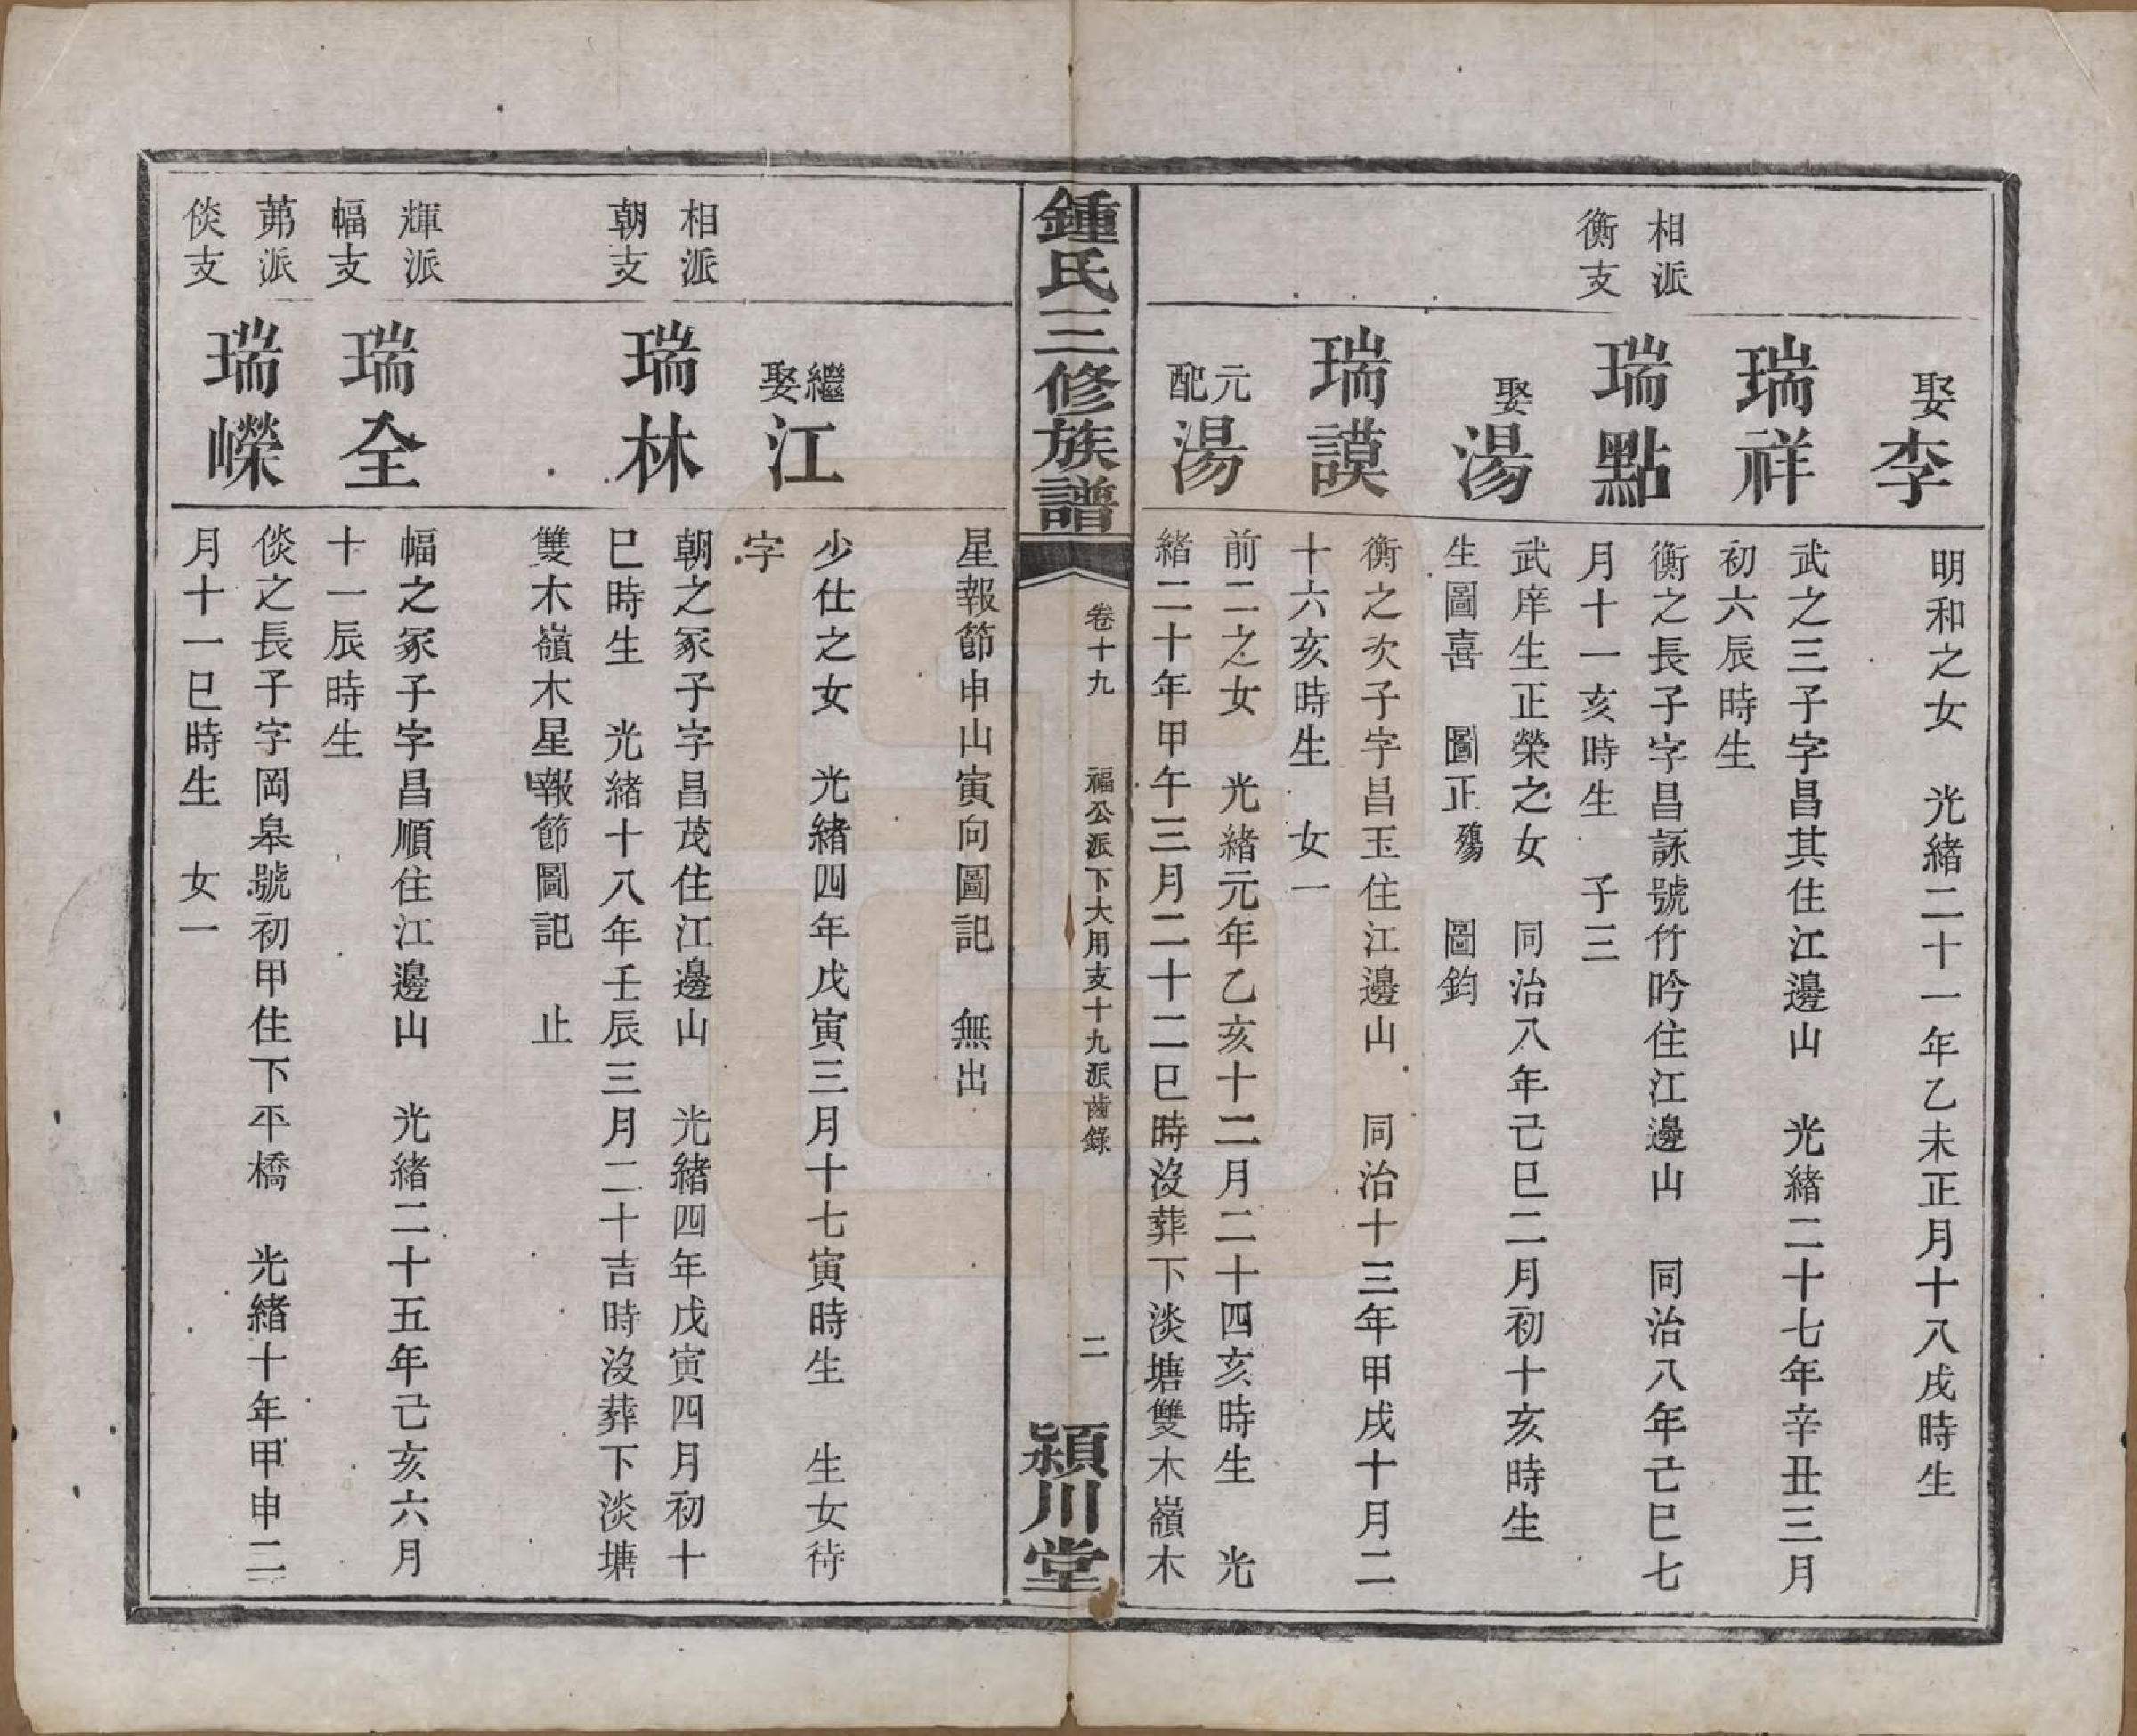 娶李
明和之女　光緒二十一年乙未正月十八戌時生
瑞祥
武之三子字昌其住江邊山　光緒二十七年辛丑三月
初六辰時生
相派
衡支
瑞點
衡之長子字昌詠號竹吟住江邊山　同治八年己巳七
月十一亥時生　子三
娶湯
武庠生正榮之女　同治八年己巳二月初十亥時生
生圖喜　圖正殤　圖鈞
瑞謨
衡之次子字昌玉住江邊山　同治十三年甲戌十月二
十六亥時生　女一
元配湯
前二之女　光緒元年乙亥十二月二十四亥時生　光
緒二十年甲午三月二十二巳時沒葬下淡塘雙木嶺木
鍾氏三修族譜
卷十九　福公派下大用支十九派齒錄
二
潁川堂
星報節申山寅向圖記　無出
繼娶江
少仕之女　光緒四年戊寅三月十七寅時生　生女待
字
相派
朝支
瑞林
朝之冢子字昌茂住江邊山　光緒四年戊寅四月初十
巳時生　光緒十八年壬辰三月二十吉時沒葬下淡塘
雙木嶺木星報節圖記　止
輝派
幅支
瑞全
幅之冢子字昌順住江邊山　光緒二十五年己亥六月
十一辰時生
茀派
倓支
瑞嶸
倓之長子字岡皋號初甲住下平橋　光緒十年甲申二
月十一巳時生　女一